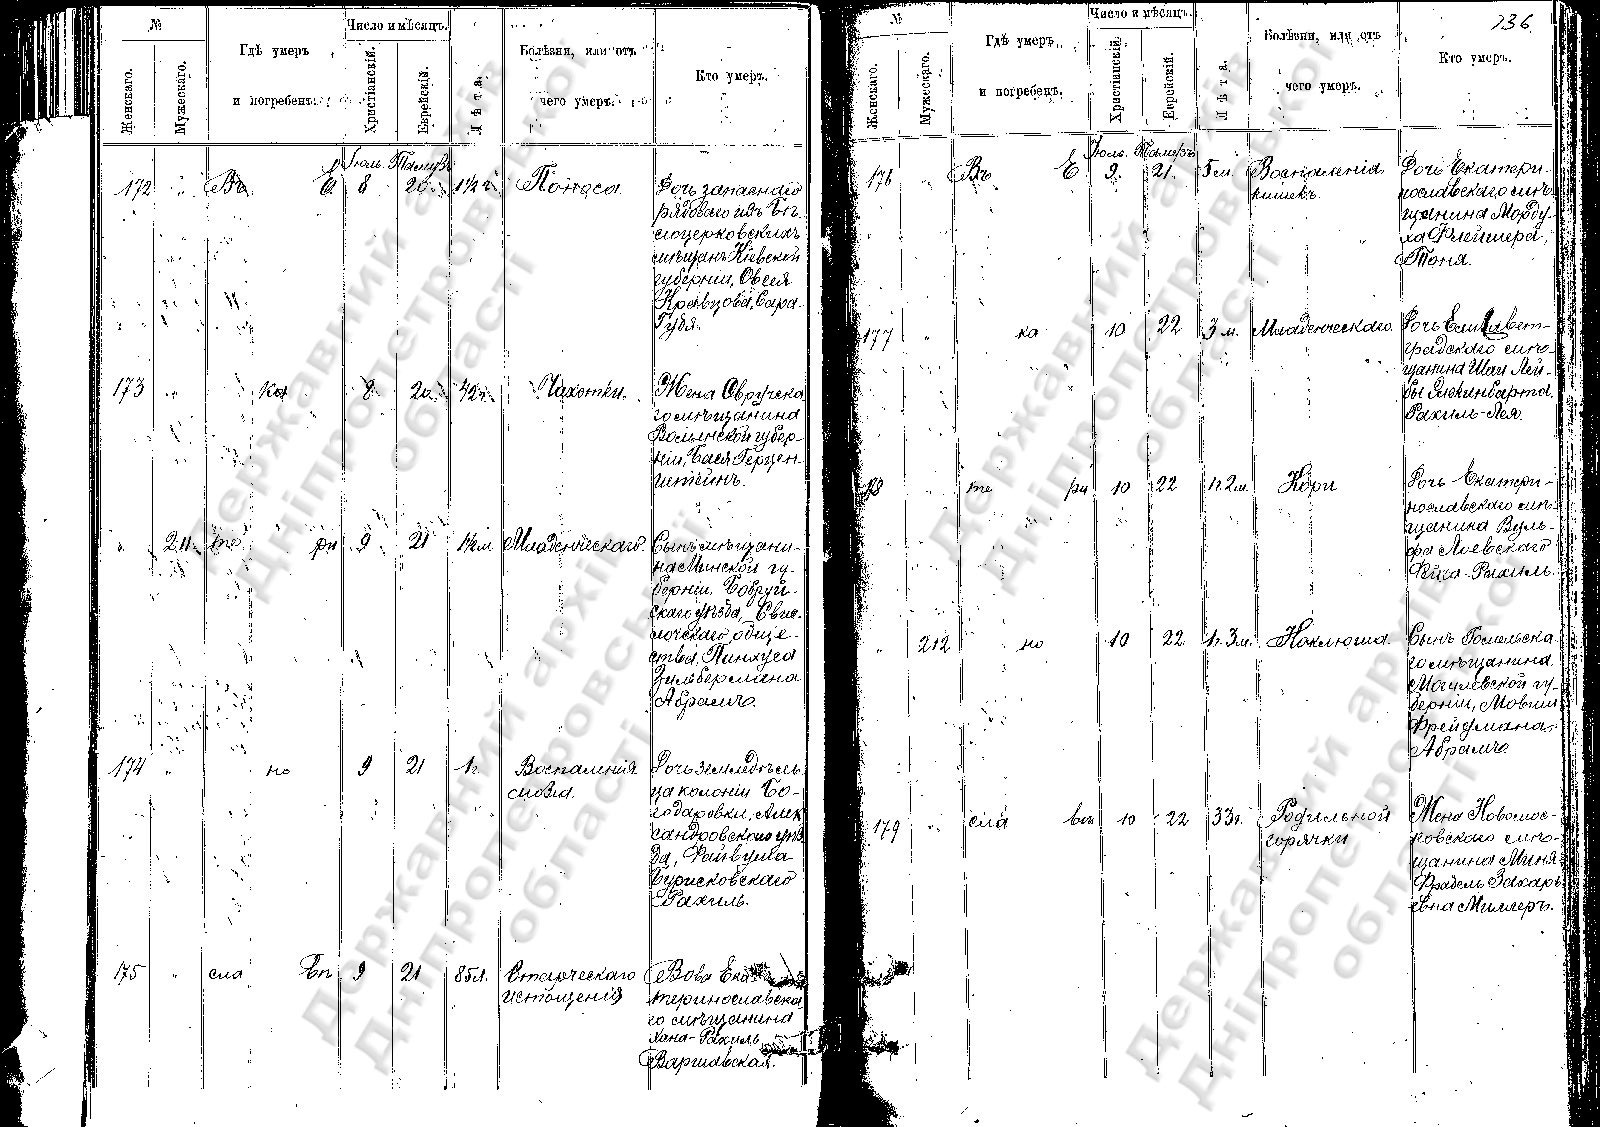 №
Женскаго.
Мужескаго.
Гдѣ умеръ
и погребенъ.
Число и мѣсяцъ.
Христіанскій.
Еврейскій.
Лѣта.
Болѣзни, или отъ
чего умеръ.
Кто умеръ.
Іюль. Тамузъ
172 " Въ Е 8 20 1½ г. Поноса
Дочь запаснаго
рядоваго изъ Бѣ-
лоцерковскихъ
мѣщанъ Кіевской
губерніи, Овсея
Кравцова, Сара-
Гудя.
173 " ка 8 20 42 г. Чахотки.
Жена Овручска-
го мѣщанина
Волынской губер-
ніи, Бася Герцен-
штейнъ.
" 211 те ри 9 21 1½ м Младенческаго.
Сынъ мѣщани-
на Минской гу-
берніи, Бобруй-
скаго уѣзда, Свис-
лочскаго обще-
ства, Пинхуса
Зильбермана
Абрамъ.
174 " но 9 21 1 г. Воспаленія
мозга.
Дочь земледѣль-
ца колоніи Бо-
годаровки, Алек-
сандровскаго уѣз-
да, Файвуша
Бурисковскаго
Рахиль.
175 " сла въ 9 21 85 л. Старческаго
истощенія
Вдова Ека-
теринославска-
го мѣщанина
Хана-Рахиль
Варшавская.
136
№
Женскаго.
Мужескаго.
Гдѣ умеръ
и погребенъ.
Число и мѣсяцъ.
Христіанскій.
Еврейскій.
Лѣта.
Болѣзни, или отъ
чего умеръ.
Кто умеръ.
Іюль. Тамузъ
176 " Въ Е 9. 21. 5 м. Воспаленія
кишекъ.
Дочь Екатери-
нославскаго мѣ-
щанина Морду-
ха Флейшера,
Тоня.
177 " ка 10 22 3 м. Младенческаго.
Дочь Елисавет-
градскаго мѣ-
щанина Шаи Лей-
бы
Рахиль-Лея.
178 те ри 10 22 1 г. 2 м. Кори
Дочь Екатери-
нославскаго мѣ-
щанина Вуль-
фа Лоевскаго
Фейга-Рахиль.
" 212 но 10 22 1 г. 3 м. Коклюша.
Сынъ Гомельска-
го мѣщанина
Могилевской гу-
берніи, Мовши
Фрейдмана,
Абрамъ.
179 " сла въ 10 22 33 г. Родильной
горячки
Жена Новомос-
ковскаго мѣ-
щанина Миня-
Фрадель Захарь-
евна Миллеръ.
Державний архів
Дніпропетровської
області
Державний архів
Дніпропетровської
області
Державний архів
Дніпропетровської
області
Державний архів
Дніпропетровської
області